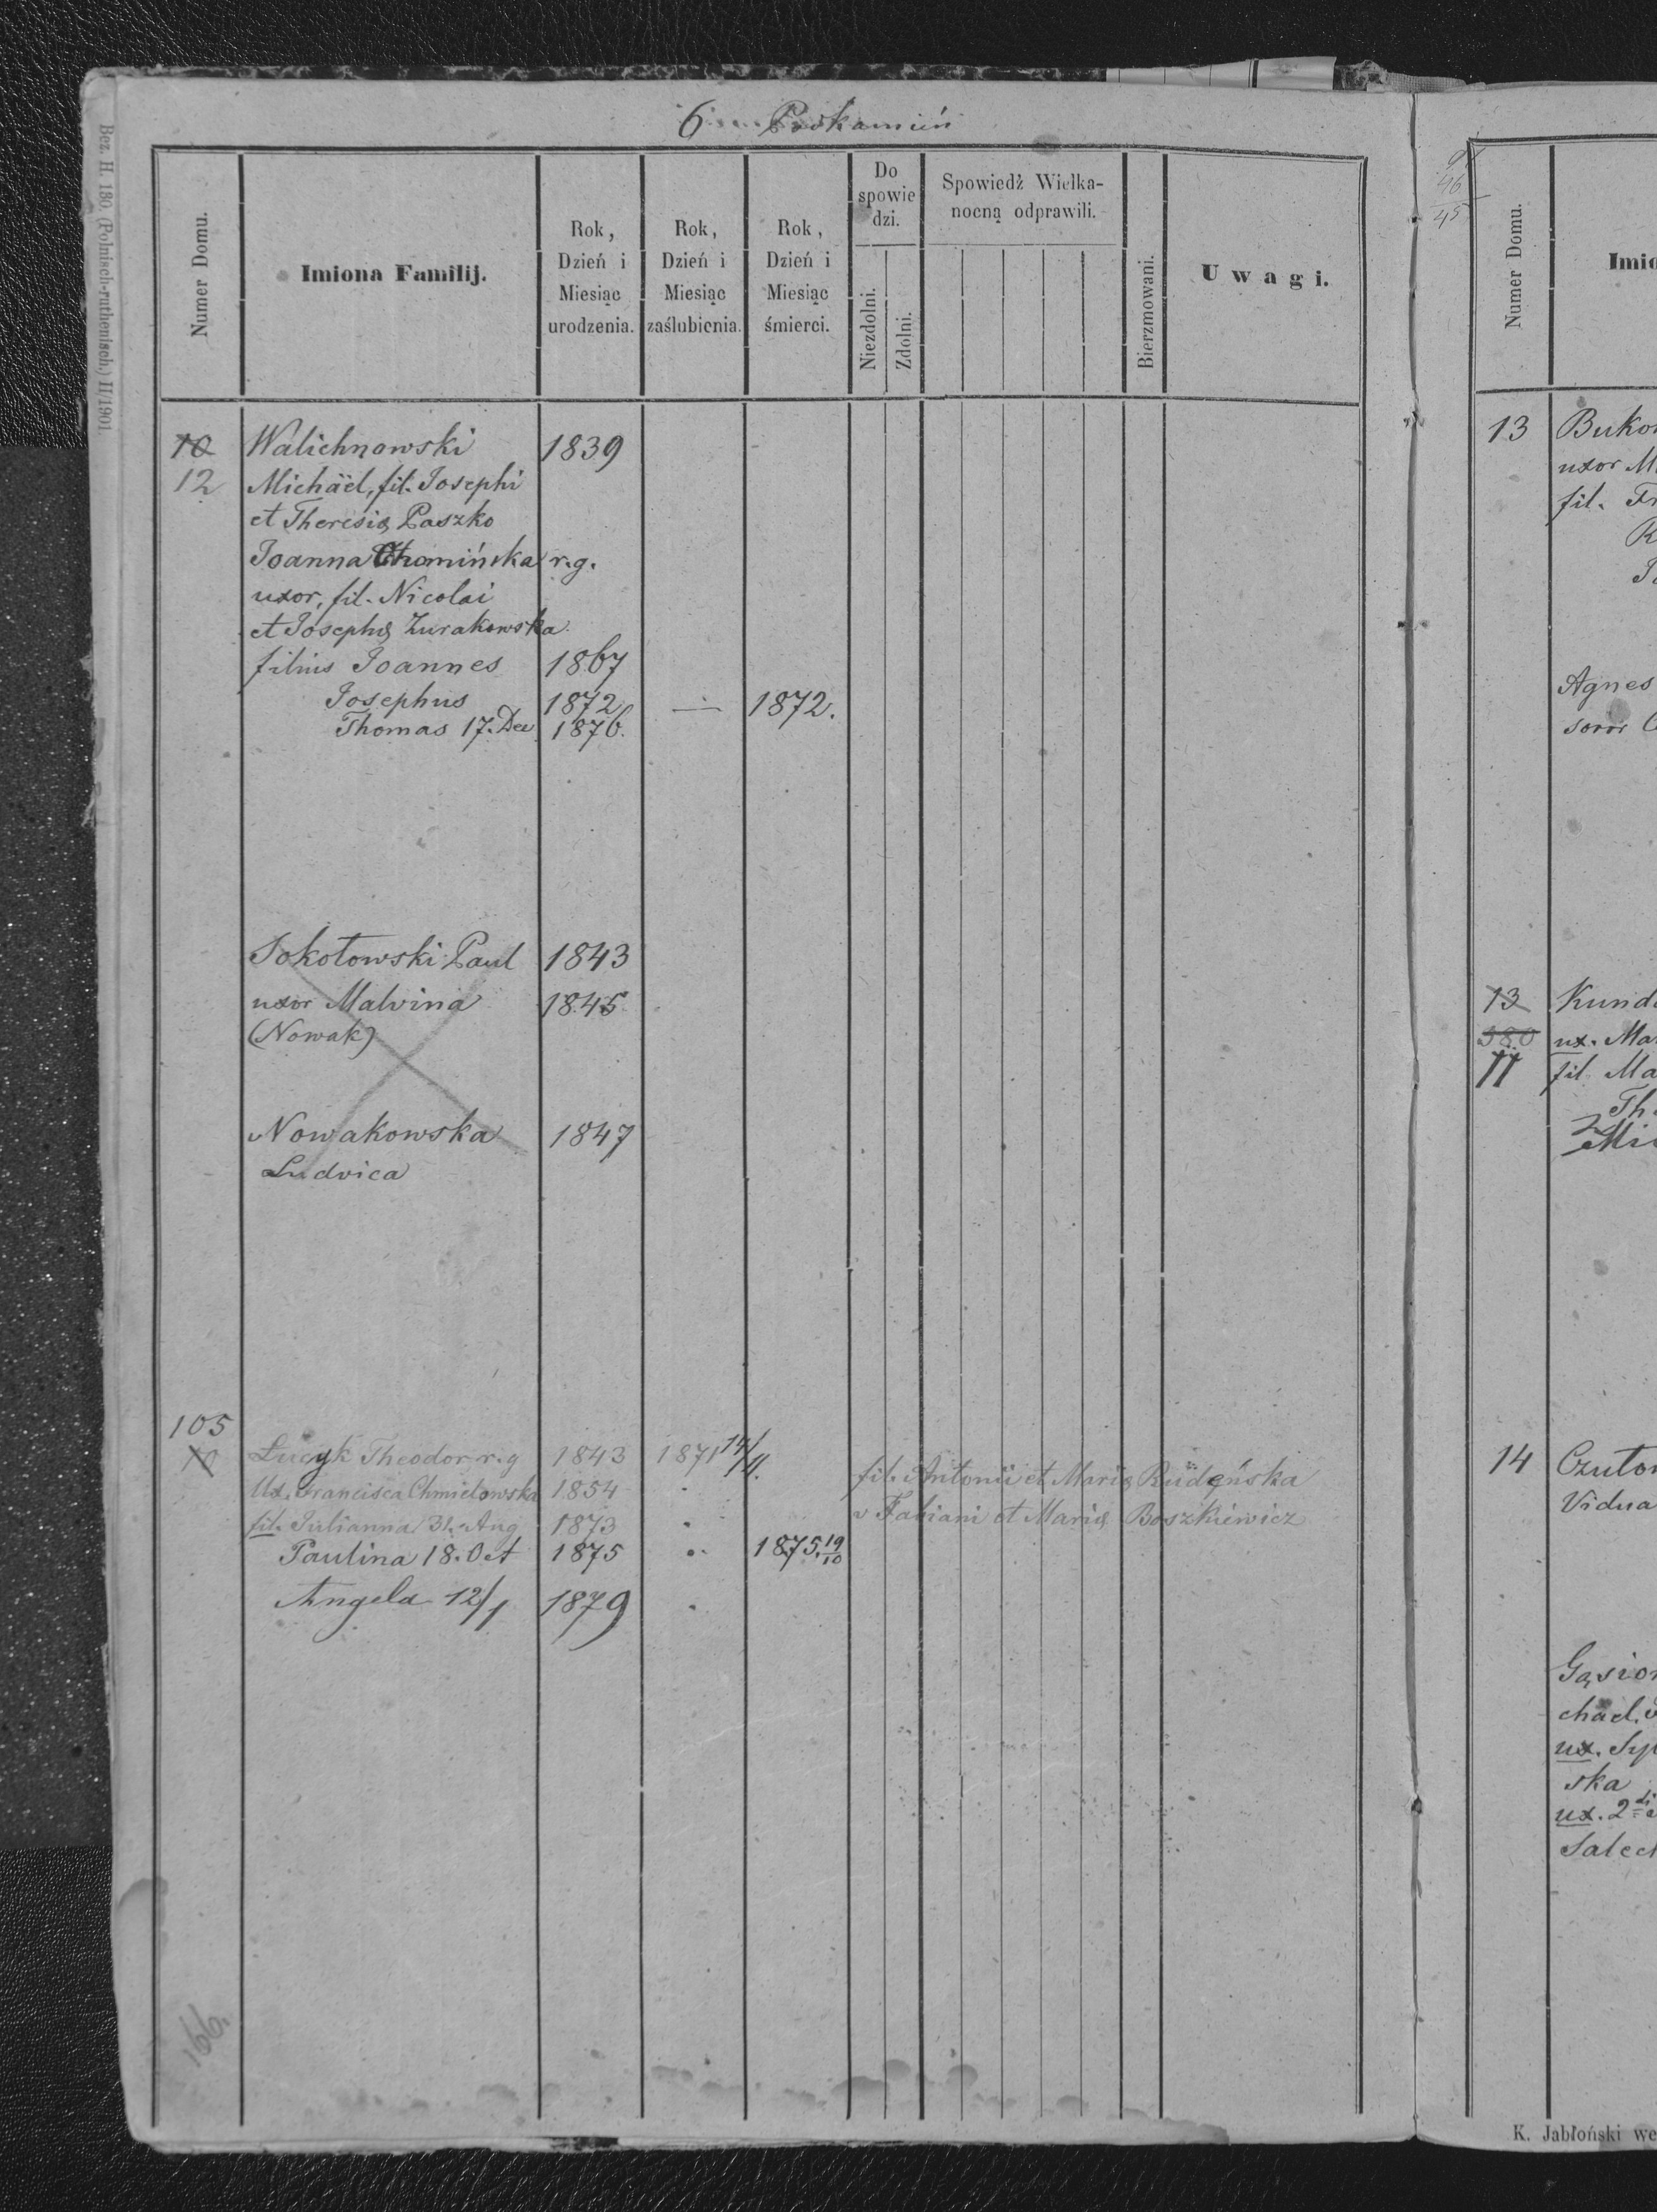 6 Podkamień
Numer Domu.
Imiona Familij.
Rok, Dzień i Miesiąc urodzenia.
Rok, Dzień i Miesiąc zaślubienia.
Rok, Dzień i Miesiąc śmierci.
Do spowiedzi.
Niezdolni.
Zdolni.
Spowiedź Wielka-
nocną odprawili.
Bierzmowani.
Uwagi.
10 Walichnowski 1839
12 Michäel, fil. Josephi
et Theresiæ Paszko
Joanna Chomińska r.g.
uxor, fil. Nicolai
et Josephæ Zurakowska
filius Joannes 1867
Josephus 1872 — 1872.
Thomas 17. Dec 1876.
Sokołowski Paul 1843
uxor Malvina 1845
(Nowak)
Nowakowska 1847
Ludvica
105
10 Łucyk Theodor r.g 1843 1871 14/11. fil. Antonii et Mariæ Rudeńska
Ux. Francisca Chmielowska 1854 " v Fabiani et Mariæ Boszkiewicz
fil. Julianna 31. Aug 1873 "
Paulina 18. Oct 1875 " 1875. 19/10
Angela 12/1 1879 "
166.
Bez. H. 180. (Polnisch-ruthenisch.) II/1901.
91
46
45
Numer Domu.
Imio
13 Buko
uxor M
fil. Fr
Agnes
soror
13 Kund
380 ux. Ma
11 fil Ma
Th
Mi
14 Czuto
Vidua
Gąsio
chael.
ux. Sy
ska
ux. 2
Salec
K. Jabłoński we